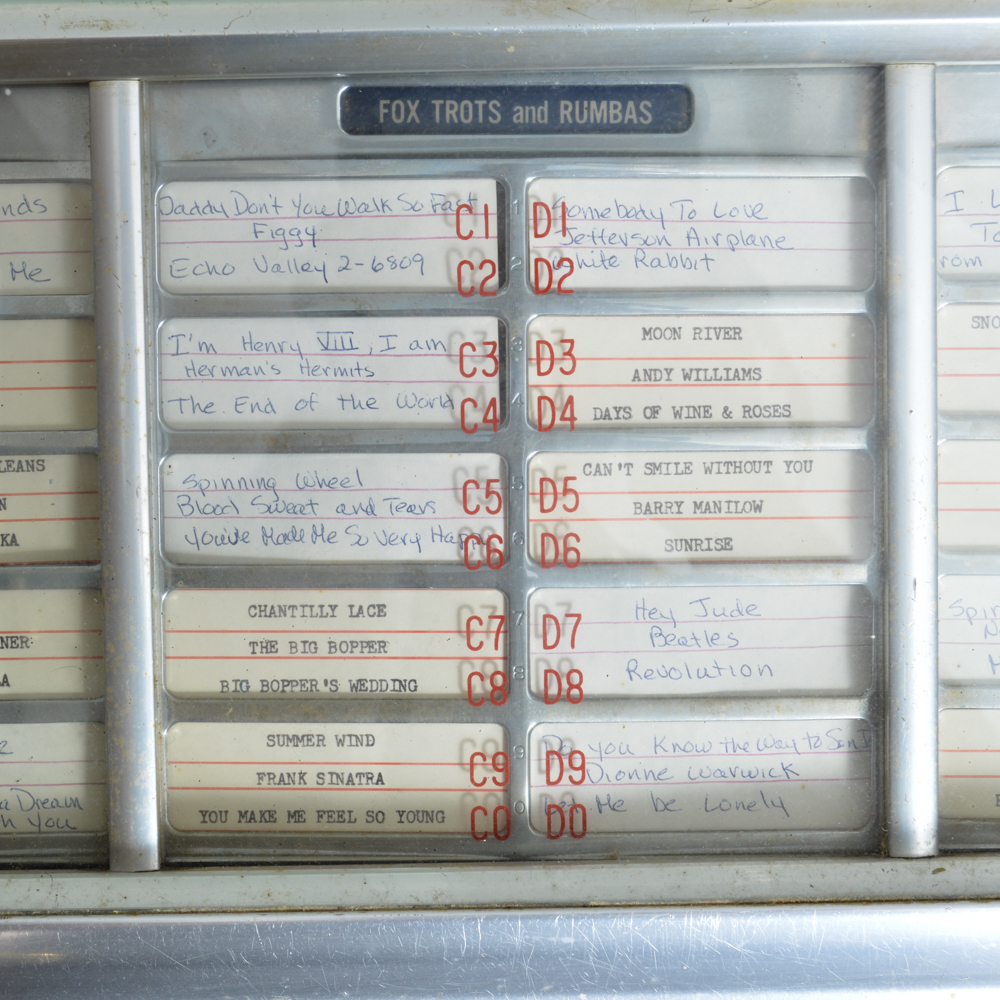 FOX TROTS and RUMBAS
nds
Me
LEANS
N
KA
NER
LA
2
a Dream
h you
Daddy Don't You Walk So Fast
Figgy
Echo Valley 2-6809
C1
C2
I'm Henry VIII, I am
Herman's Hermits
The End of the World
C3
C4
Spinning Wheel
Blood Sweat and Tears
You've Made Me So Very Happy
C5
C6
CHANTILLY LACE
THE BIG BOPPER
BIG BOPPER'S WEDDING
C7
C8
SUMMER WIND
FRANK SINATRA
YOU MAKE ME FEEL SO YOUNG
C9
C0
D1
D2
Somebody To Love
Jefferson Airplane
White Rabbit
D3
D4
MOON RIVER
ANDY WILLIAMS
DAYS OF WINE & ROSES
D5
D6
CAN'T SMILE WITHOUT YOU
BARRY MANILOW
SUNRISE
D7
D8
Hey Jude
Beatles
Revolution
D9
D0
Do you Know the Way to San
Dionne Warwick
Me be Lonely
I L
To
rom
SNO
Spin